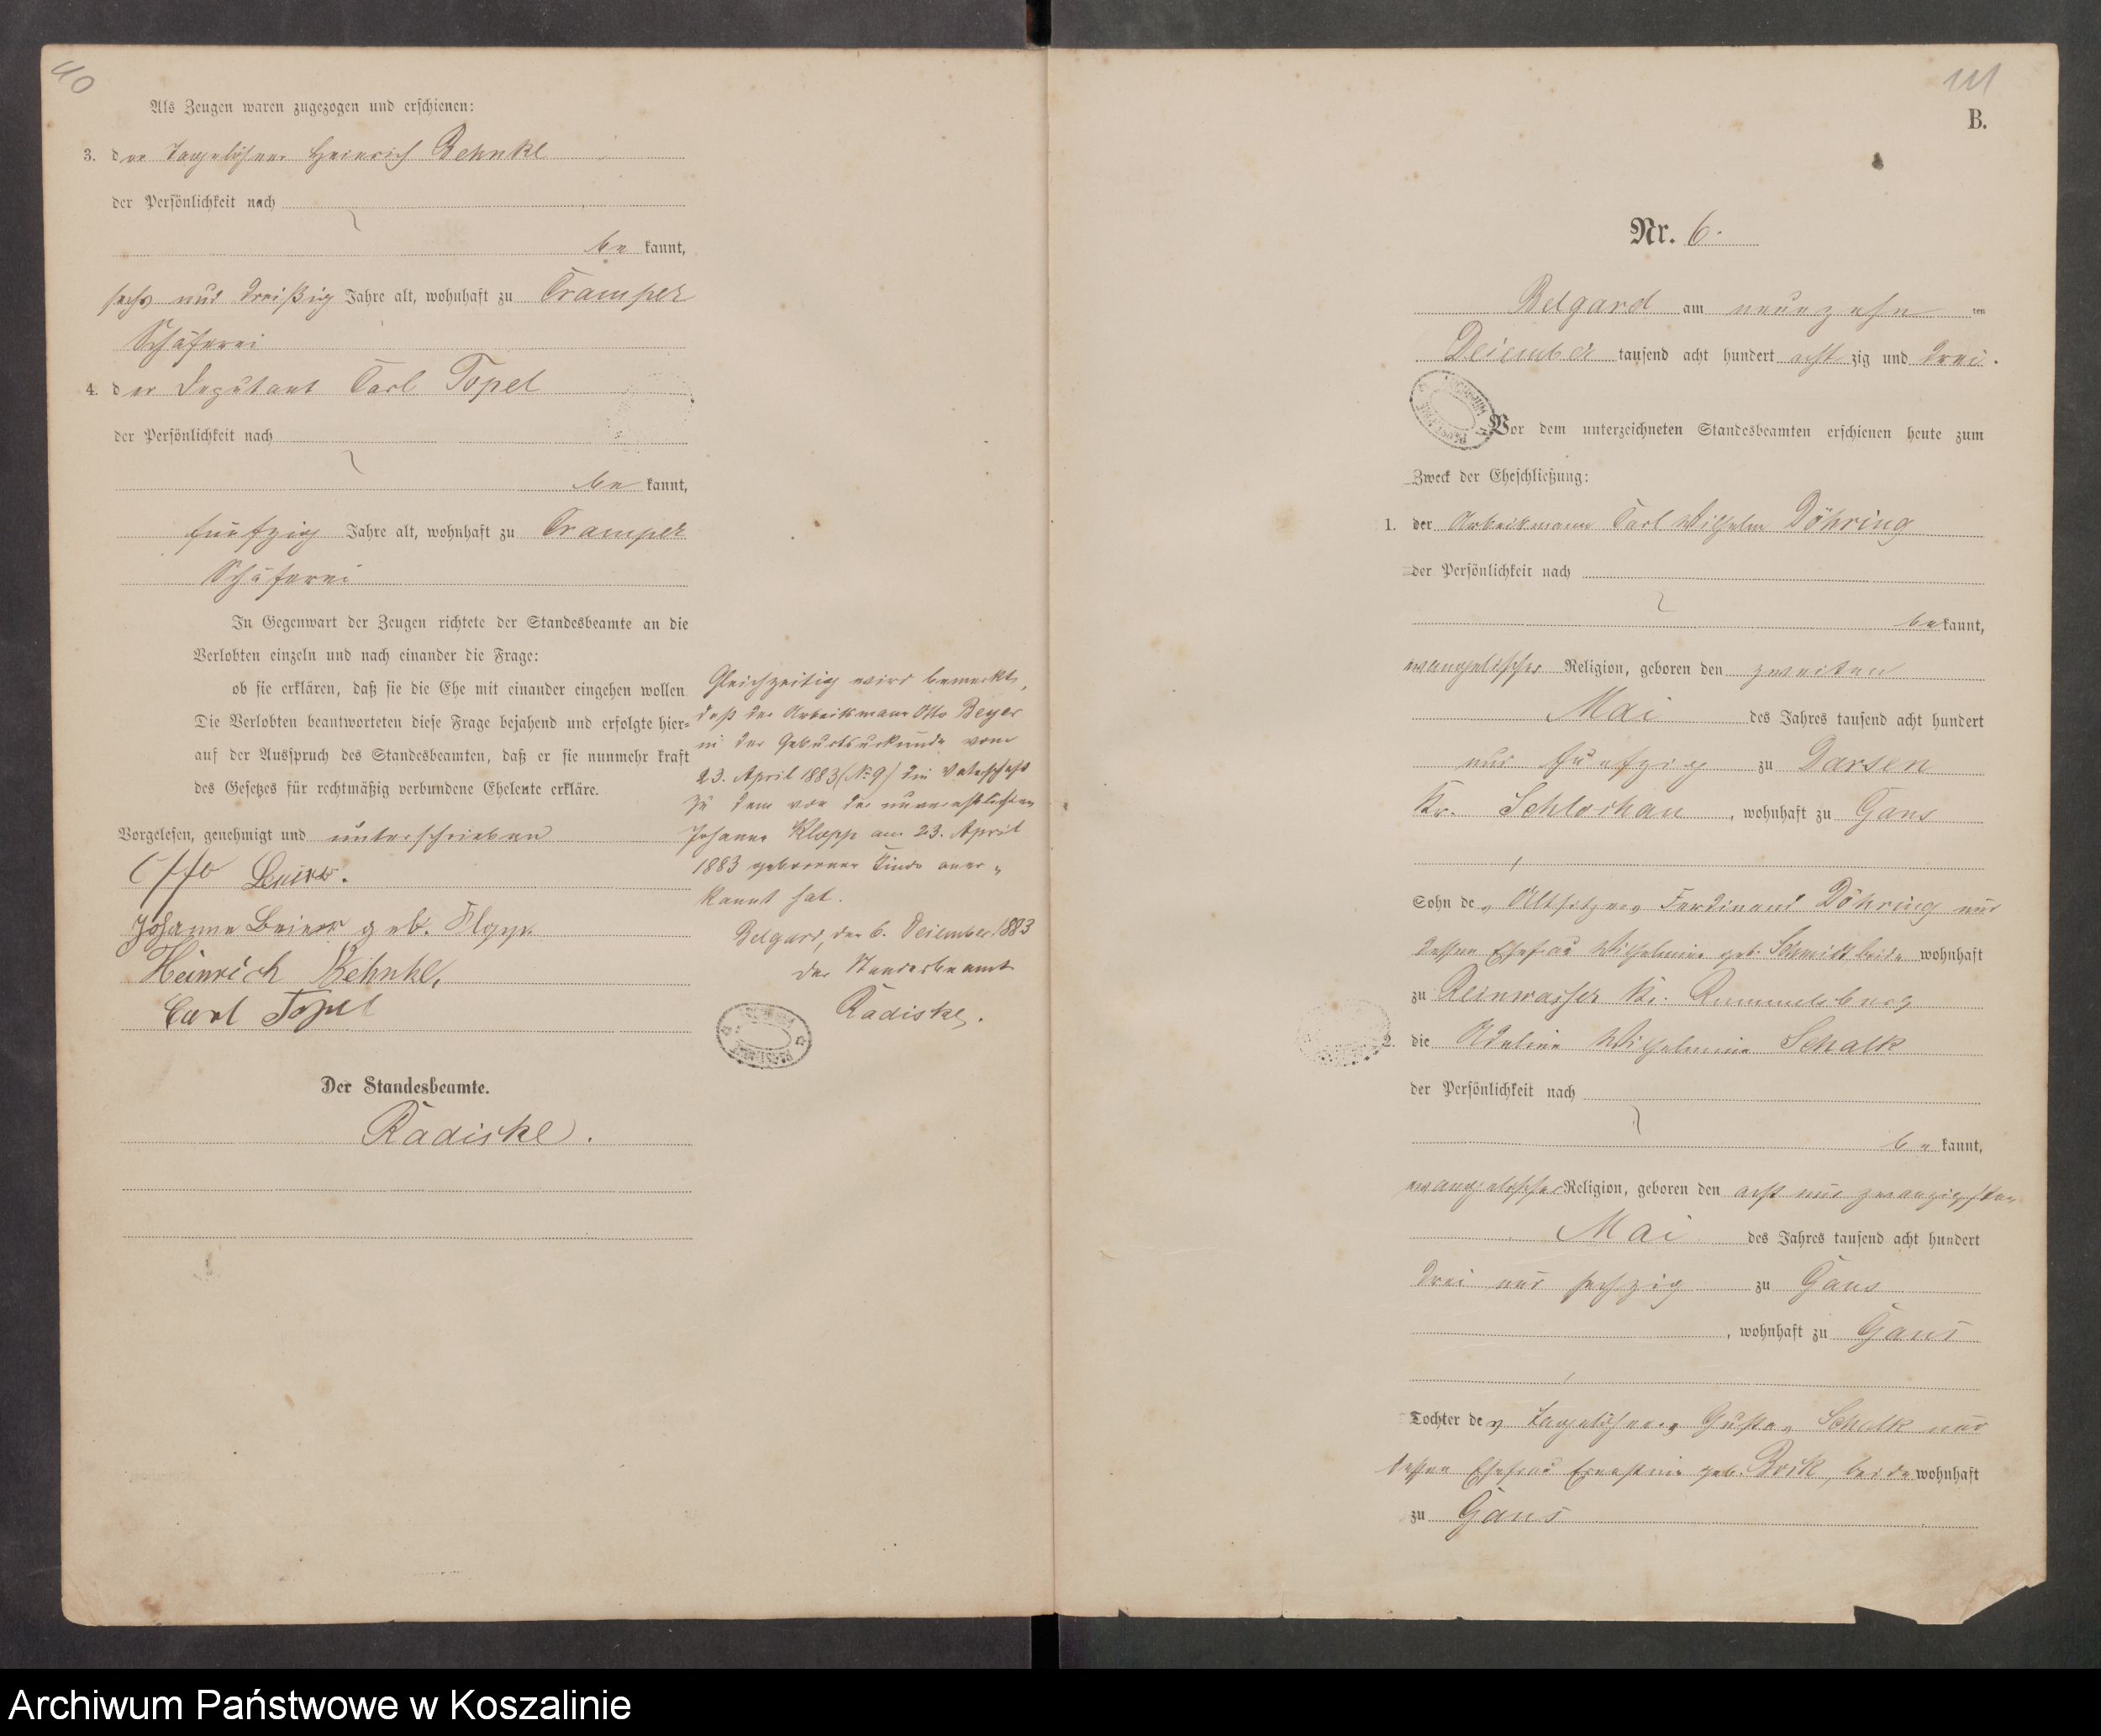 40
Als Zeugen waren zugezogen und erschienen:
3. der Tagelöhner Heinrich Behnke
der Persönlichkeit nach
be kannt,
sechs und dreißig Jahre alt, wohnhaft zu Tramper
Schäferei
4. der Deputant Carl Topel
der Persönlichkeit nach
be kannt,
fünfzig Jahre alt, wohnhaft zu Tramper
Schäferei
In Gegenwart der Zeugen richtete der Standesbeamte an die
Verlobten einzeln und nach einander die Frage:
ob sie erklären, daß sie die Ehe mit einander eingehen wollen
Die Verlobten beantworteten diese Frage bejahend und erfolgte hier-
auf der Ausspruch des Standesbeamten, daß er sie nunmehr kraft
des Gesetzes für rechtmäßig verbundene Eheleute erkläre.
Vorgelesen, genehmigt und unterschrieben
Otto
Johanne Beier geb. Klopp.
Heinrich Behnke,
Carl Topel
Der Standesbeamte.
Radiske.
Gleichzeitig wird bemerkt,
daß der Arbeitsmann Otto Beyer
in der Geburtsurkunde vom
23. April 1883 (No 9) die Vaterschaft
zu dem von der unverehelichten
Johanne Klopp am 23. April
1883 geborenen Kinde aner-
kannt hat.
Belgard, den 6. Dezember 1883
Der Standesbeamte
Radiske.
B.
Nr. 6.
Belgard am neunzehn ten
Dezember tausend acht hundert acht zig und drei.
Vor dem unterzeichneten Standesbeamten erschienen heute zum
Zweck der Eheschließung:
1. der Arbeitsmann Carl Wilhelm Döhring
der Persönlichkeit nach
be kannt,
evangelischer Religion, geboren den zweiten
Mai des Jahres tausend acht hundert
und fünfzig zu Darsen
Kr. Schlochau, wohnhaft zu Gans
Sohn des Altsitzers Ferdinand Döhring und
dessen Ehefrau Wilhelmine geb. Schmidt beide wohnhaft
zu Reinwasser Kr. Rummelsburg
2. die Adeline Wilhelmine Schalk
der Persönlichkeit nach
be kannt,
evangelischer Religion, geboren den acht und zwanzigsten
Mai des Jahres tausend acht hundert
drei und sechzig zu Gans
, wohnhaft zu Gans
Tochter des Tagelöhners Gustav Schalk und
dessen Ehefrau Ernestine geb. beide wohnhaft
zu Gans
Archiwum Państwowe w Koszalinie